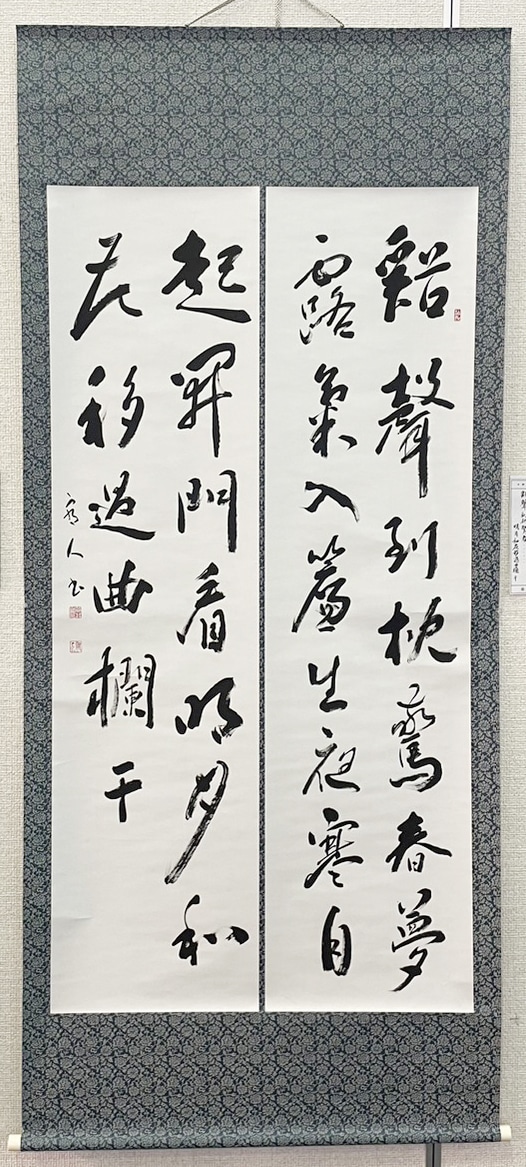 谿聲到枕驚春夢
露氣入簾生夜寒自
起開門看明月和
花移過曲欄干
人书